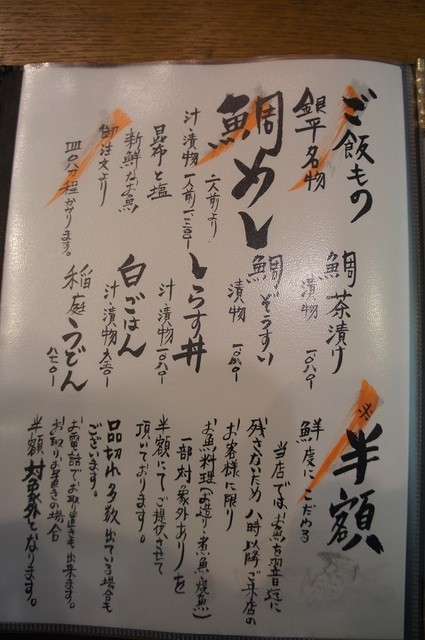 ご飯もの
銀平名物
鯛めし
二人前より
汁・漬物 一人前 一、二三〇
昆布と塩
新鮮なお魚
御注文より
四〇分程かかります。
鯛茶漬け
漬物 一〇八〇
鯛ぞうすい
漬物 一〇八〇
しらす丼
汁 漬物 一〇八〇
白ごはん
汁・漬物 五四〇
稲庭うどん
八七〇
※半額
鮮度にこだわる
当店ではお魚を翌日に
残さないため 八時以降ご来店の
お客様に限り
お魚料理(お造り・煮魚・焼魚)
一部対象外ありを
半額にてご提供させて
頂いております。
品切れ多数出ている場合も
ございます。
お電話でお取り置きも出来ます。
お取りお置きの場合
半額対象外となります。